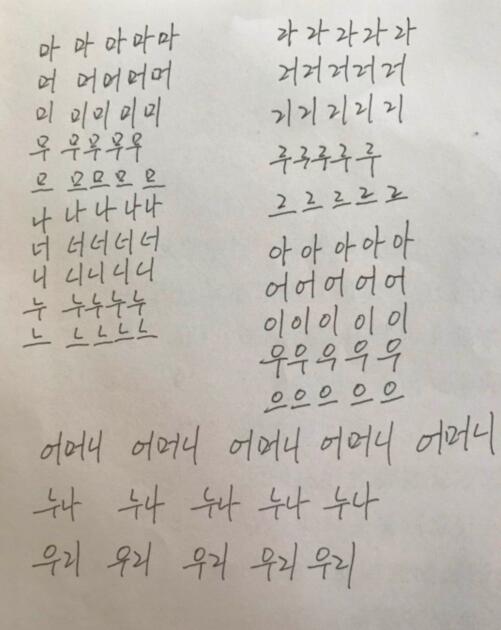 마 마 마 마 마
머 머 머 머 머
미 미 미 미 미
무 무 무 무 무
므 므 므 므 므
나 나 나 나 나
너 너 너 너 너
니 니 니 니 니
누 누 누 누 누
느 느 느 느 느
라 라 라 라 라
러 러 러 러 러
리 리 리 리 리
루 루 루 루 루
르 르 르 르 르
아 아 아 아 아
어 어 어 어 어
이 이 이 이 이
우 우 우 우 우
으 으 으 으 으
어머니 어머니 어머니 어머니 어머니
누나 누나 누나 누나 누나
우리 우리 우리 우리 우리